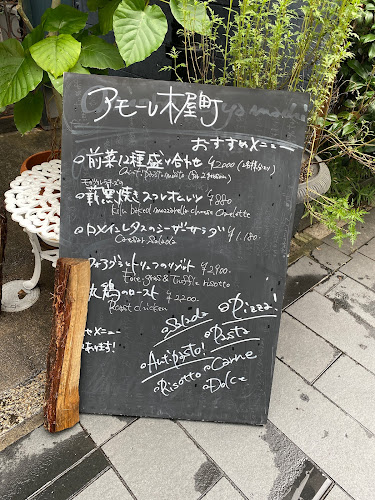 アモーレ木屋町
おすすめメニュー
前菜12種盛り合わせ ¥2000
Antipasto misto
モッツァレラチーズの
窯焼きスフレオムレツ ¥880
Kiln baked mozzarella cheese Omelette
ロメインレタスのシーザーサラダ ¥1,180
Caesar Salada
フォアグラとトリュフのリゾット ¥2400
Foie-gras & Truffle risotto
鶏のロースト ¥2200
Roast chicken
Salada
Pizza!
Pasta
Antipasto!
Carne
Risotto
Dolce
メニュー
あります!